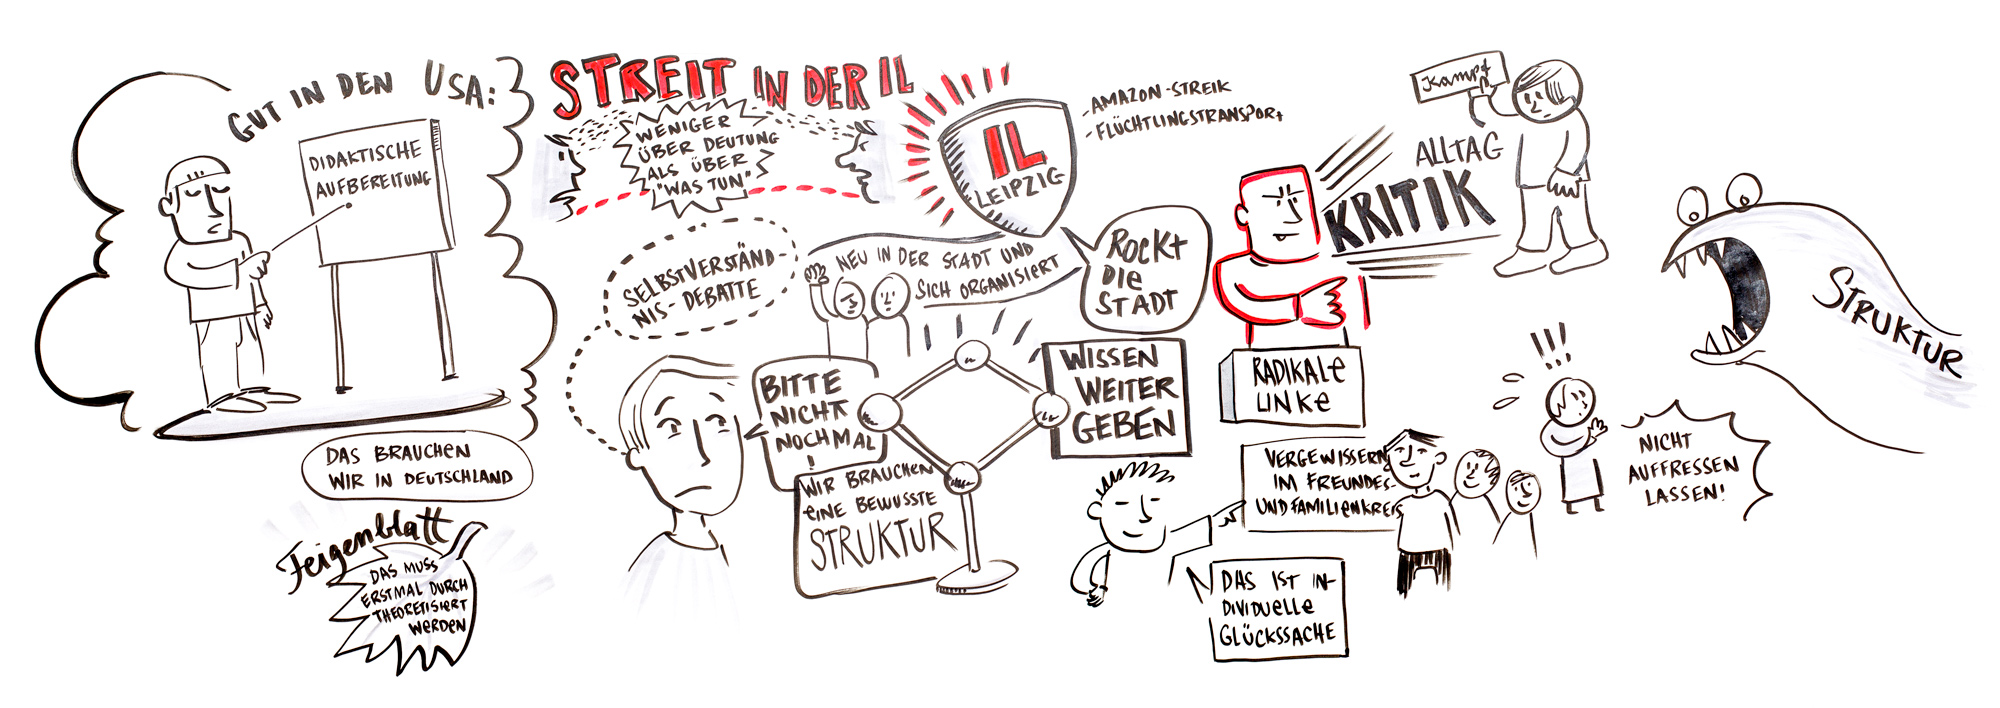 GUT IN DEN USA:
DIDAKTISCHE
AUFBEREITUNG
DAS BRAUCHEN
WIR IN DEUTSCHLAND
Feigenblatt
DAS MUSS
ERSTMAL DURCH
THEORETISIERT
WERDEN
STREIT IN DER IL
WENIGER
ÜBER DEUTUNG
ALS ÜBER
"WAS TUN"
SELBSTVERSTÄND-
NIS-DEBATTE
BITTE
NICHT
NOCHMAL
!
WIR BRAUCHEN
EINE BEWUSSTE
STRUKTUR
IL
LEIPZIG
-AMAZON-STREIK
-FLÜCHTLINGSTRANSPORT
NEU IN DER STADT UND
SICH ORGANISIERT
ROCKT
DIE
STADT
WISSEN
WEITER
GEBEN
KRITIK
RADIKALE
LINKE
Kampf
ALLTAG
VERGEWISSERN
IM FREUNDES-
UND FAMILIENKREIS
DAS IST IN-
DIVIDUELLE
GLÜCKSSACHE
!!!
NICHT
AUFFRESSEN
LASSEN!
STRUKTUR